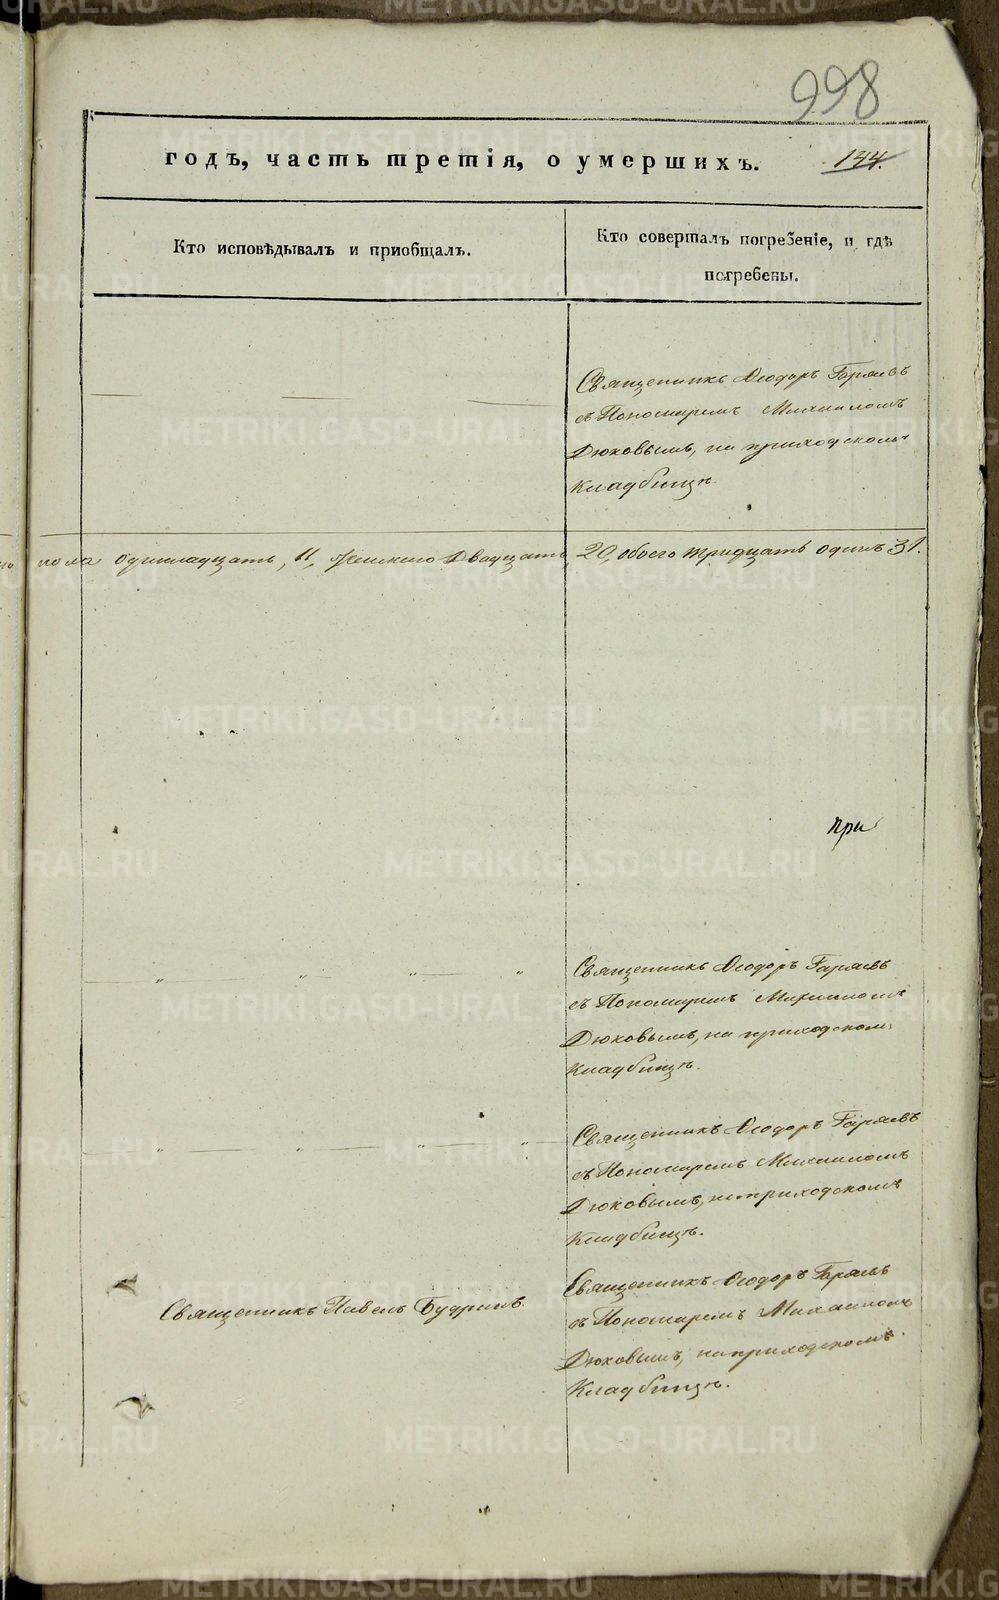 998
годъ, часть третія, о умершихъ.
144.
Кто исповѣдывалъ и пріобщалъ.
Кто совершалъ погребеніе, и гдѣ
погребены.
Священникъ Ѳеодоръ Гаряевъ
съ Пономаремъ Михаиломъ
Дюковымъ, на приходскомъ
кладбищѣ.
пола одиннадцать, 11, женскаго двадцать, 20, обоего тридцать одинъ 31.
при
Священникъ Ѳеодоръ Гаряевъ
съ Пономаремъ Михаиломъ
Дюковымъ, на приходском,
кладбищѣ.
Священникъ Ѳеодоръ Гаряевъ
съ Пономаремъ Михаиломъ
Дюковымъ, на приходскомъ
кладбищѣ.
Священникъ Павелъ Будринъ.
Священникъ Ѳеодоръ Гаряевъ
съ Пономаремъ Михаиломъ
Дюковымъ, на приходскомъ.
Кладбищѣ.
METRIKI.GASO-URAL.RU